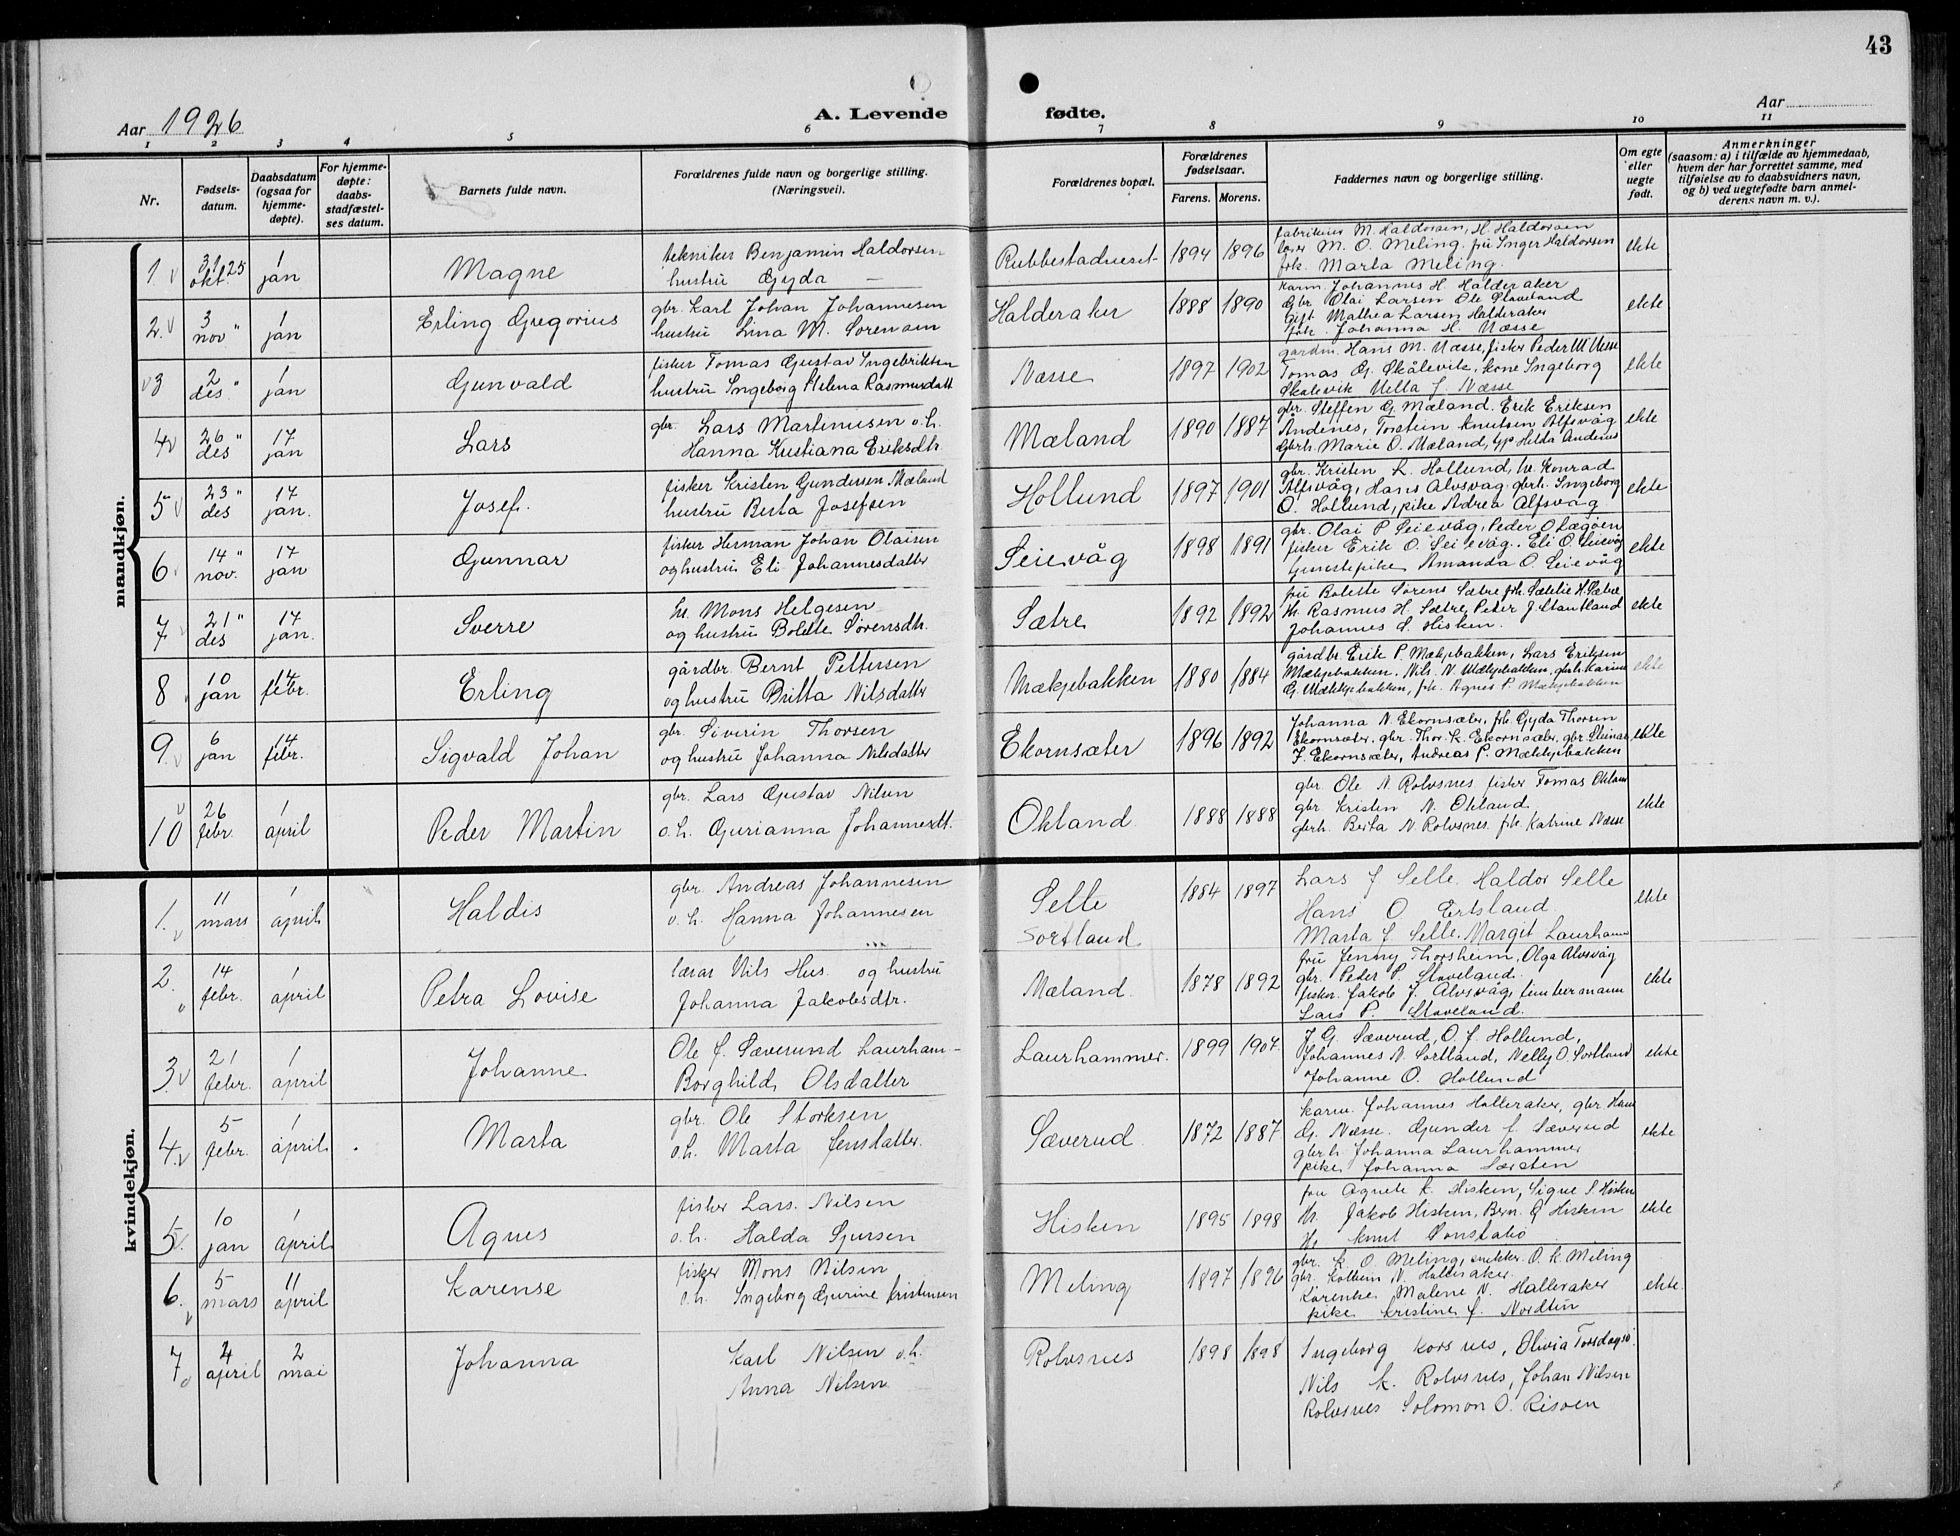 43
Aar 1926
A. Levende fødte.
Aar
1 2 3 4 5 6 7 8 9 10 11
Nr.
Fødsels-
datum.
Daabsdatum
(ogsaa for
hjemme-
døpte).
For hjemme-
døpte:
daabs-
stadfæstel-
ses datum.
Barnets fulde navn.
Forældrenes fulde navn og borgerlige stilling.
(Næringsvei).
Forældrenes bopæl.
Forældrenes
fødselsaar.
Farens. Morens.
Faddernes navn og borgerlige stilling.
Om egte
eller
uegte
født.
Anmerkninger
(saasom: a) i tilfælde av hjemmedaab,
hvem der har forrettet samme, med
tilføielse av to daabsvidners navn,
og b) ved uegtefødte barn anmel-
derens navn m. v.).
mandkjøn.
1. 31 okt. 25 1 jan Magne
tekniker Benjamin Haldorsen
hustru Gyda —
Rubbestadneset 1894 1896
fabrikeier M. Haldorsen, H. Haldorsen
lærer M. O. Meling. fru Inger Haldorsen
frk. Marta Meling.
ekte
2. 3 nov " 1 jan Erling Gregorius
gbr. Karl Johan Johannesen
hustru Lina M. Sørensen
Halderaker 1888 1890
karm. Johannes H. Halderaker
Gbr. Olai Larsen Ole Staveland
Gift Mathea Larsen Halderaker
frk. Johanna H. Næsse
ekte
3 2 des. " 1 jan Gunvald
fisker Tomas Gustav Ingebriktsen
hustru Ingeborg Helena Rasmusdatt
Næsse 1897 1902
gardm. Hans M. Næsse, fisker Peder M Næsse
Tomas G. Skålevik, kone Ingeborg
Skålevik Mella J. Næsse
ekte
4 26 des " 17 jan Lars
gbr. Lars Martinusen o.h.
Hanna Kristiana Eriksdtr.
Mæland 1890 1887
gbr. Steffen G. Mæland. Erik Eriksen
Andenes, Torstein Knutsen Alfsvåg
Gbrh. Marie O. Mæland, Helda Andenes
ekte
5 23 des " 17 jan. Josef.
fisker Kristen Gundersen Mæland
hustru Berta Josefsen
Hollund 1897 1901
gbr. Kristen L. Hollund, hr. Konrad
Alfsvåg, Hans Alvsvag. gbrh. Ingeborg
O. Hollund, pike Andrea Alfsvåg
ekte
6 14 nov. " 17 jan Gunnar
fisker Herman Johan Olaisen
og hustru Eli Johannesdatter
Seievåg 1898 1891
gbr. Olai P Seievåg, Peder O Lægøen
fisker Erik O. Seievåg. Eli O. Seievåg
tjenestepike Amanda O. Seievåg
ekte
7 21 des " 17 jan. Sverre
hr. Mons Helgesen
og hustru Bolette Sørensdtr.
Sætre 1892 1892
fru Bolette Sørens Sætre frk. Sætre
Hr. Rasmus H. Sætre, Peter J. Stautland
Johannes S. Hisken.
ekte
8 10 jan 14 febr. Erling
gårdbr. Bernt Pettersen
og hustru Britta Nilsdatter
Mækjebakken 1880 1884
gårdbr. Erik P. Mækjebakken, Lars Eriksen
Mækjebakken. Nils N. Mækjebakken, gbrh. Karine
G. Mækkjebakken, frk. Agnes P. Mækjebakken
ekte
9. 6 jan 14 febr. Sigvald Johan
gbr. Siverin Thorsen
og hustru Johanna Nilsdatter
Ekornsæter 1896 1892
Johanna N. Ekornsæter, frk. Gyda Thorsen
Ekornsæter, gbr. Thor. K. Ekornsæter, gbr. Steinar
J. Ekornsæter, Andreas P. Mækkjebakken
ekte
10 26 febr. 1 april Peder Martin
gbr. Lars Gustav Nilsen
o.h. Gurianna Johannesdt.
Okland 1888 1888
gbr. Ole N Rolvsnes fisker Tomas Okland
gbr. Kristen N. Okland
gbrh. Berta N Rolvsnes. frk. Katrine Næsse
ekte
kvindekjøn.
1. 11 mars 1 april Haldis
gbr. Andreas Johannesen
o. h. Hanna Johannesen
Selle
Sortland 1884 1897
Lars J Selle. Haldor Selle
Hans O. Ertsland
Marta J Selle. Margit Laurham
ekte
2. 14 febr. 1 april Petra Lovise
lærar Nils Hus og hustru
Johanna Jakobsdtr.
Mæland 1878 1892
fru Jenny Thorsheim, Olga Alvsvåg
gbr. Peter P. Staveland.
fisker. Jakob J. Alvsvåg, timbermann
Lars P. Staveland.
ekte
3. 21 febr. 1 april Johanne
Ole J. Sæverund Laurham—
Borghild Olsdatter
Laurhammer. 1899 1907.
J. G. Sæverud, O. J. Hollund,
Johannes N. Sortland, Nelly O. Sortland
Johanne O. Hollund
ekte
4. 5 febr. 1 april Marta
gbr. Ole Storksen
o.h. Marta Jensdatter
Sæverud. 1872 1887
karm. Johannes Halleraker, gbr Hans
G. Næsse. Gunder J. Sæverud
gbrh. Johanna Laurhammer
pike Johanna Særsten
ekte
5. 10 jan 1 april Agnes
fisker Lars. Nilsen
o. h. Halda Sjursen
Hisken 1895 1898
fru Agnete K. Hisken, Signe S Hisken
Hr. Jakob Hisken, Bern. G Hisken
Hr Knut Tonstabø
ekte
6. 5 mars 11 april Karense
fisker Mons Nilsen
o.h. Ingeborg Gurine Kristensen
Meling 1897 1896
gbr. K. O. Meling, snekker. O. K. Meling
gbr. Kolbein N. Halleraker
Karenke Malene N. Halleraker
pike Kristine J. Nordtin
ekte.
7 4 april 2 mai Johanna
Karl Nilsen o.h.
Anna Nilsen
Rolvsnes 1898 1898
Ingeborg Korsnes, Olivia Torsdagsø
Nils K. Rolvsnes, Johan Nilsen
Rolvsnes Solomon O. Risøen